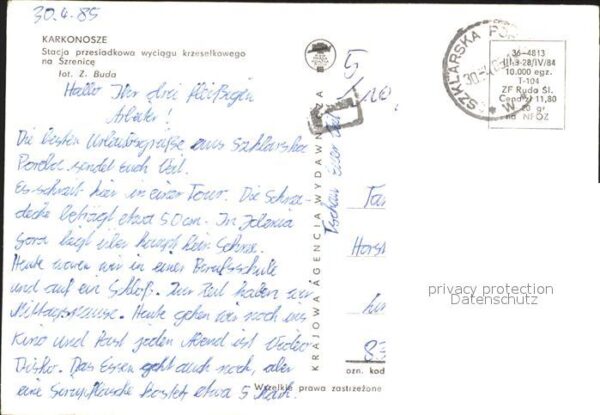 30.4.85
KARKONOSZE
Stacja przesiadkowa wyciągu krzesełkowego
na Szrenicę
fot. Z. Buda
Hallo Ihr drei fleißigen
Arbeiter!
Die besten Urlaubsgrüße aus Szklarska
Poreba sendet Euch Veit.
Es schneit hier in einer Tour. Die Schnee-
decke beträgt etwa 50cm. In Jelenia
Gora liegt überhaupt kein Schnee.
Heute waren wir in einer Berufsschule
und auf ein Schloß. Zur Zeit haben wir
Mittagspause. Heute gehen wir noch ins
Kino und fast jeden Abend ist Video-
Disko. Das Essen geht auch noch, aber
eine kostet etwa 5 Mark.
Tschau Euer Veit
KRAJOWA AGENCJA WYDAWNICZA
SZKLARSKA POR
30.-4.85
36-4813
10.000 egz.
T-104
ZF Ruda Śl.
Cena zł 11,80
na NFOZ
Fam
Horst
83
ozn. kod
Wszelkie prawa zastrzeżone
privacy protection
Datenschutz